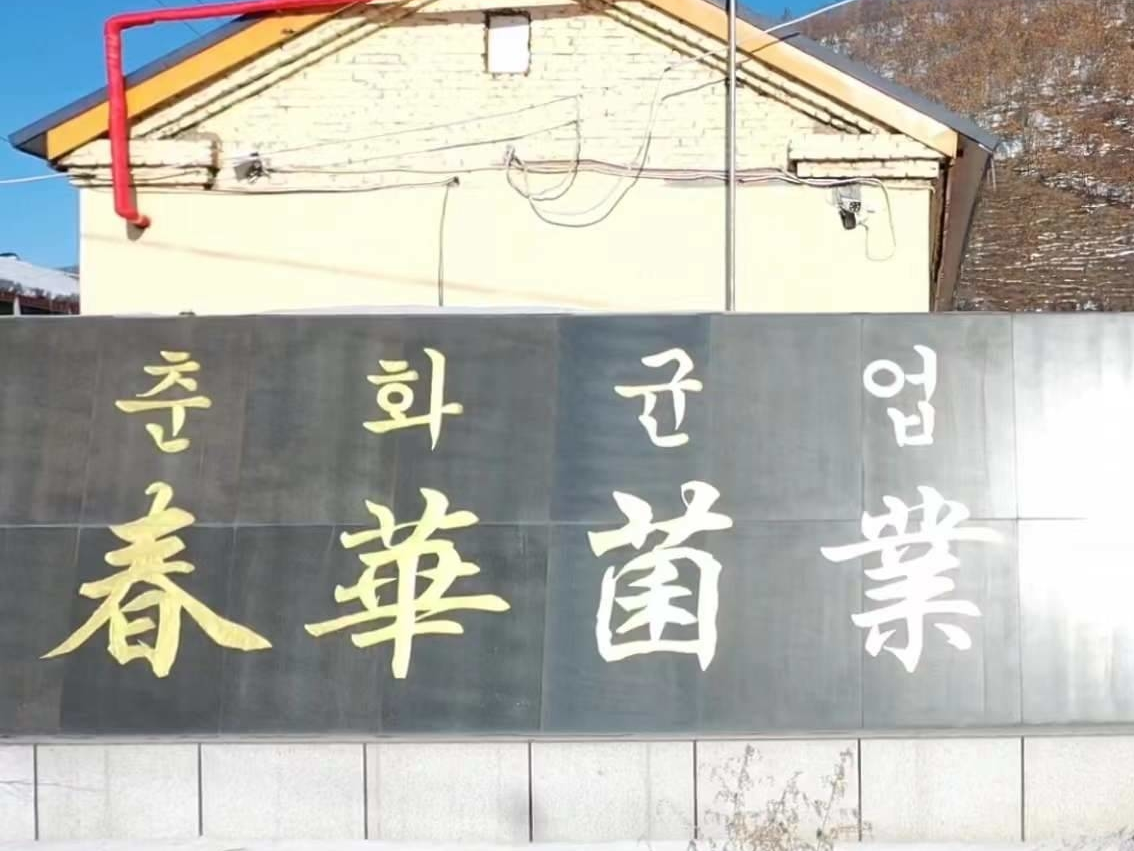 춘화균업
春華菌業